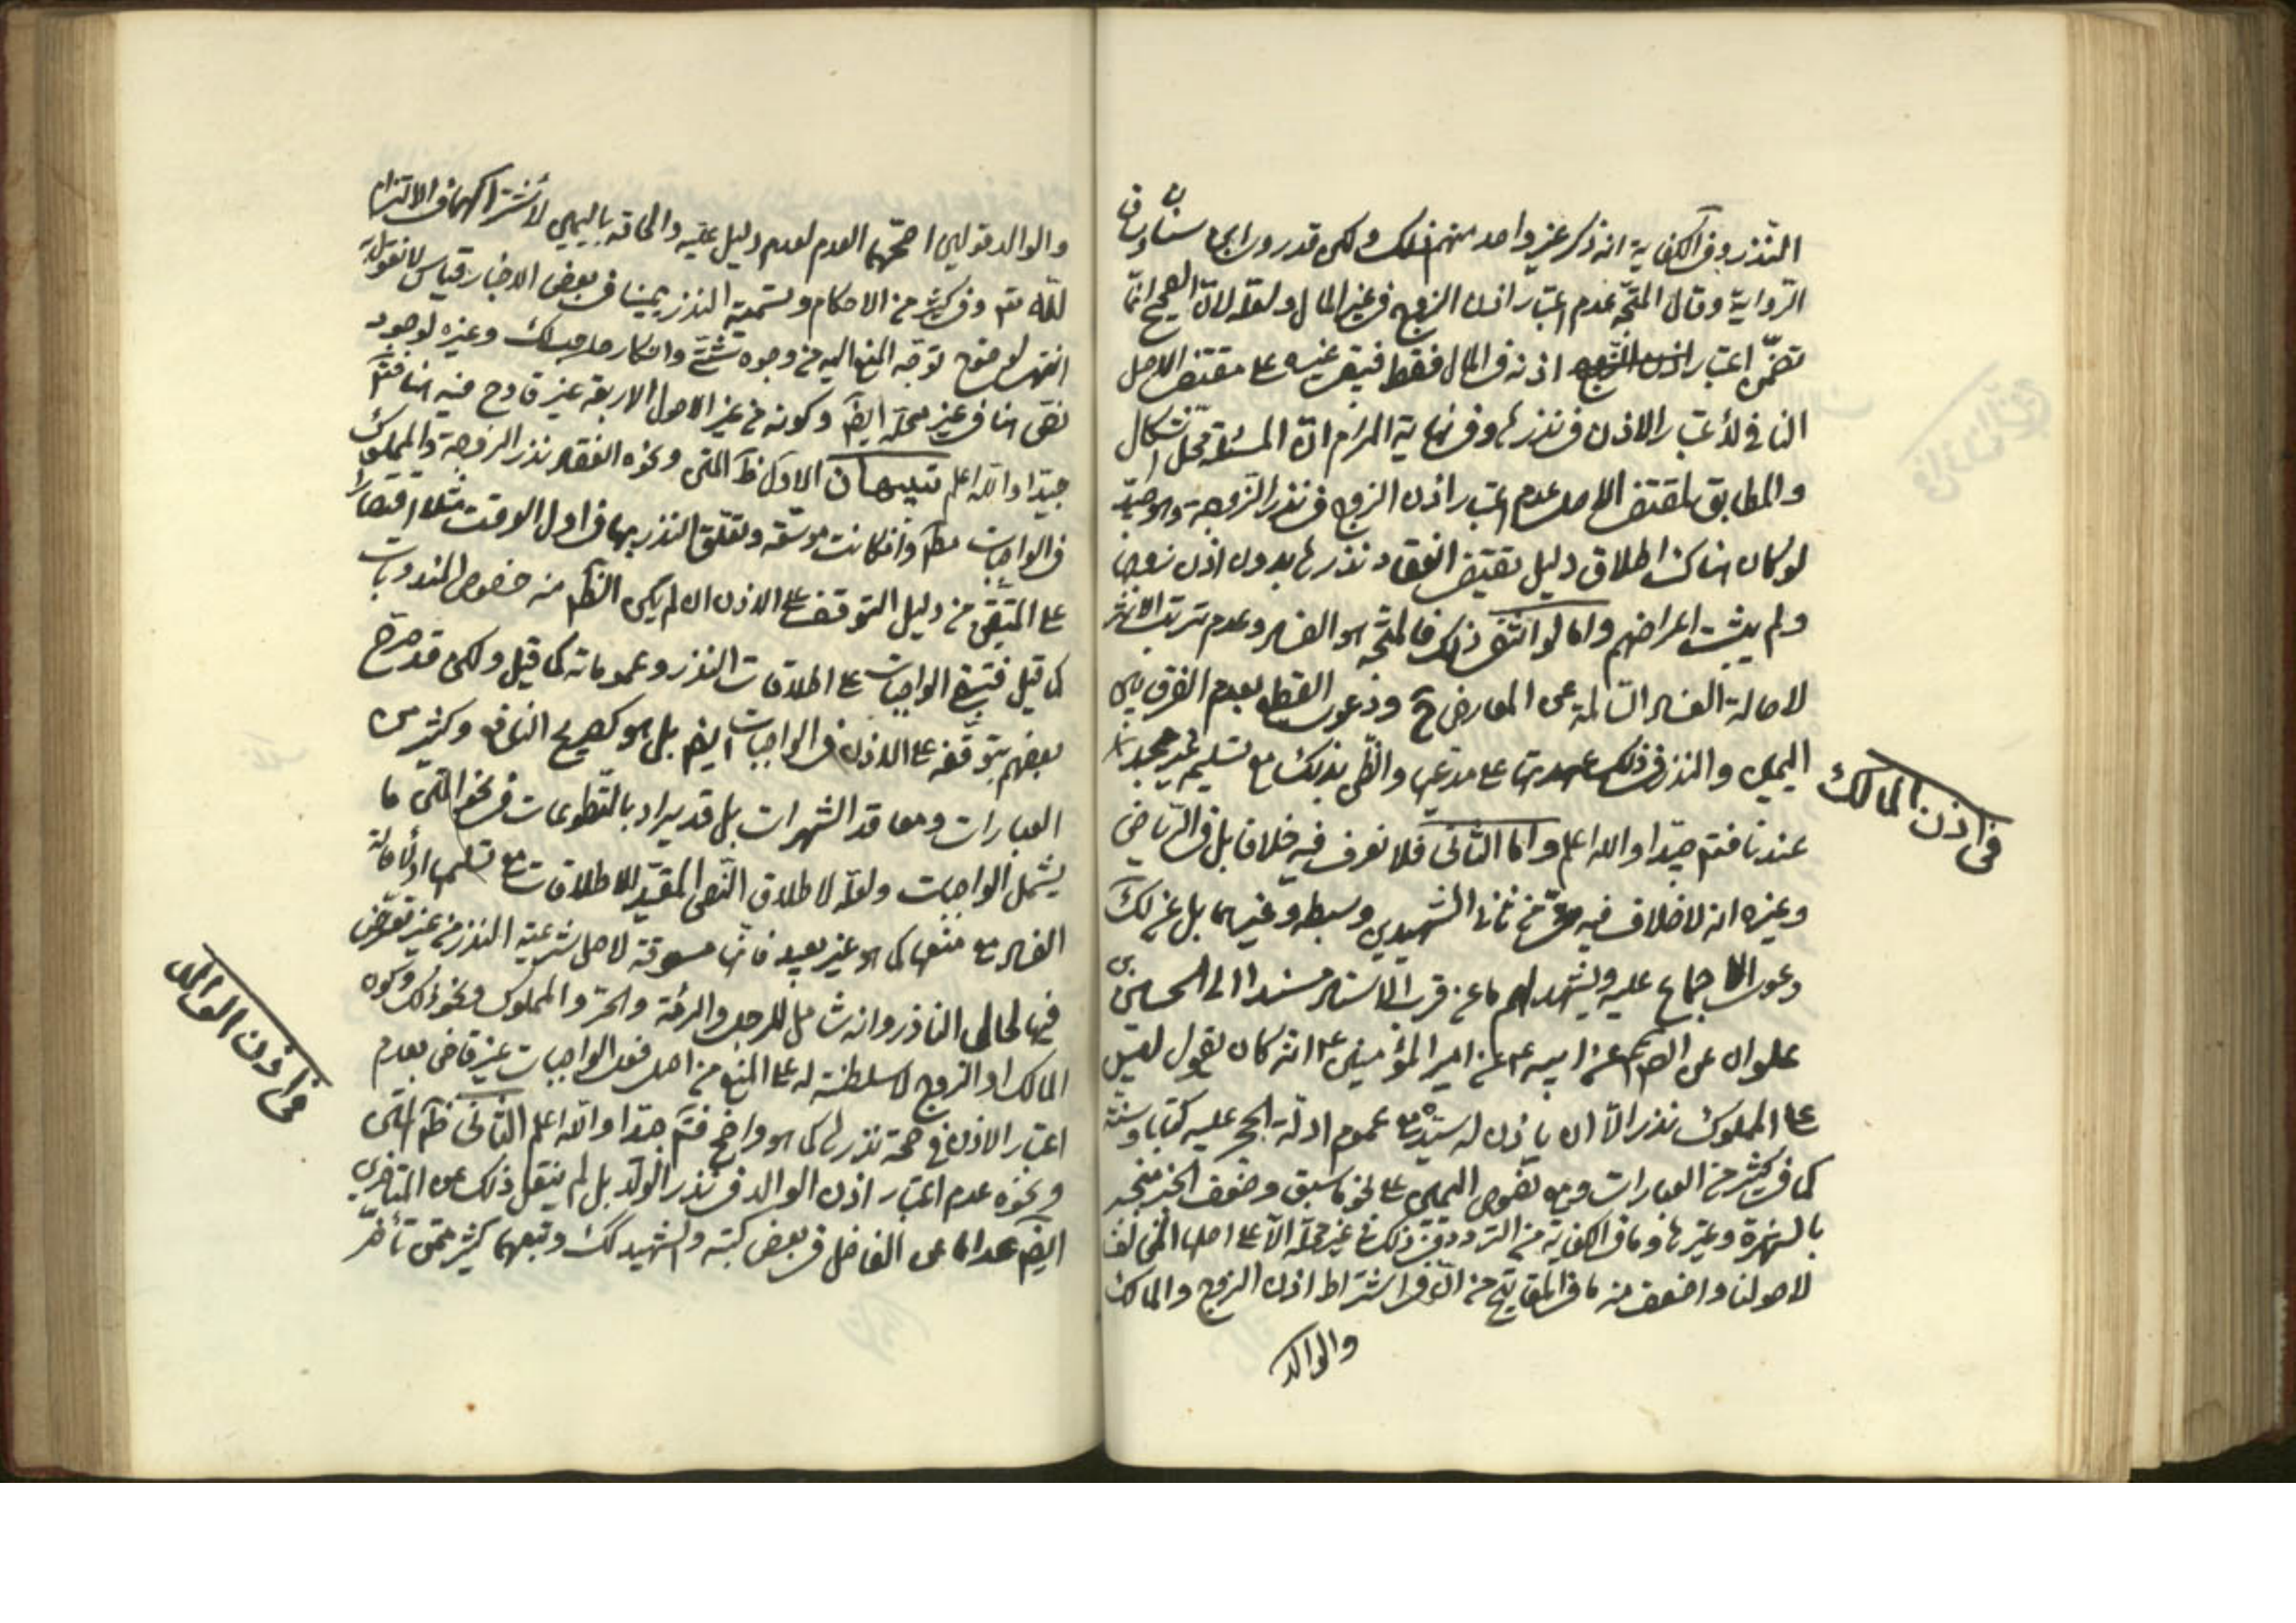 النذر وفي الكفاية انه ذكر غير واحد منهم ذلك ولكن قد روى ابن سنان
الرواية وقال المتجه عدم اعتبار اذن الزوج في غير المال ولعله لان الصحيح انما
تضمن اعتبار اذنه في المال فقط فيبقى غيره على مقتضى الاصل
النافي لاعتبار الاذن في نذرها وفي نهاية المرام ان المسئلة محل اشكال
والمطابق لمقتضى الاصل عدم اعتبار اذن الزوج في نذر الزوجة وهو جيد
لو كان هناك اطلاق دليل يقتضى انعقاد نذرها بدون اذن زوجها
ولم يثبت اعراضهم واما لو انتفى ذلك فالمتجه هو الفساد وعدم ترتب الاثر
لاصالة الفساد السالمة عن المعارض ح ودعوى القطع بعدم الفرق بين
اليمين والنذر في ذلك عهدتها على مدعيها والظن بذلك مع تسليمه غير مجد
في اذن المالك
عندنا فتم جيدا والله اعلم واما الثاني فلا نعرف فيه خلافا بل في الرياض
وغيره انه لا خلاف فيه من ثاني الشهيدين وسبطه وغيرهما بل عن لك
دعوى الاجماع عليه ويشهد لهم ما عن قرب الاسناد مسندا الى الحسين بن
علوان عن الصم عن ابيه ع عن امير المؤمنين ع انه كان يقول ليس
على المملوك نذر الا ان ياذن له سيده مع عموم ادلة الحجر عليه كتابا وسنة
كما في كثير من العبارات ومع نصوص اليمين على نحو ما سبق وضعف الخبر منجبر
بالشهرة وغيرها وما في الكفاية من التردد في ذلك في غير محله الا على اصله المخالف
لاصولنا واضعف منه ما في المفاتيح من ان في اشتراط اذن الزوج والمالك
والوالد
والوالد قولين اصحهما العدم لعدم دليل عليه والحاقه باليمين لاشتراكهما في الالتزام
لله تم وفي كثير من الاحكام وتسمية النذر يمينا في بعض الاخبار قياس لا نقول به
انتهى لوضوح توجه المنع اليه من وجوه شتى وانكار هناك وغيره لوجود
نص هنا في غير محله ايضا وكونه من غير الاصول الاربعة غير قادح فيه هنا فتم
جيدا والله اعلم تنبيهان الاول ظ المتن ونحوه انعقاد نذر الزوجة والمملوك
في الواجبات مطلقا وان كانت موسعة وتعلق النذر بها في اول الوقت مثلا اقتصارا
على المتيقن من دليل التوقف على الاذن ان لم يكن الظاهر منه خصوص المندوبات
كما قيل فتبقى الواجبات على اطلاقات النذر وعموماته كما قيل ولكن قد صرح
بعضهم بتوقفه على الاذن في الواجبات ايضا بل هو كصريح النافع وكثير من
العبارات ومعاقد الشهرات بل قد يراد بالتطوعات في نحو المتن ما
يشمل الواجبات ولعله لاطلاق النص المقيد للاطلاقات مع تسليمها او لاصالة
الفساد مع منعها كما هو غير بعيد فانها مسوقة لاصل شرعية النذر من غير تعرض
فيها لحال الناذر وانه شامل للرجل والمرئة والحر والمملوك ونحو ذلك وكون
المالك او الزوج لا سلطنة له على المنع من اصل فعل الواجبات غير قاض بعدم
اعتبار الاذن في صحة نذرها كما هو واضح فتم جيدا والله اعلم الثاني ظاهر المتن
في اذن الوالد
ونحوه عدم اعتبار اذن الوالد في نذر الولد بل لم ينقل ذلك عن المتاخرين
ايضا عدا ما عن الفاضل في بعض كتبه والشهيد لك وتبعهما كثير ممن تأخر